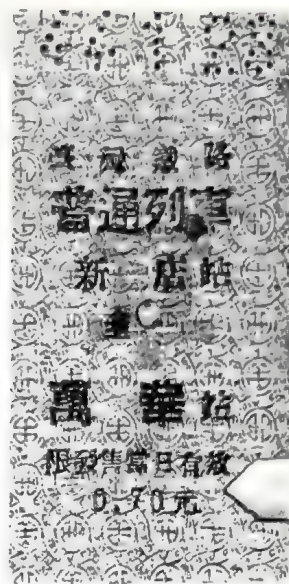 普通列車
新店站
至
萬華站
限發售當日有效
0.70元